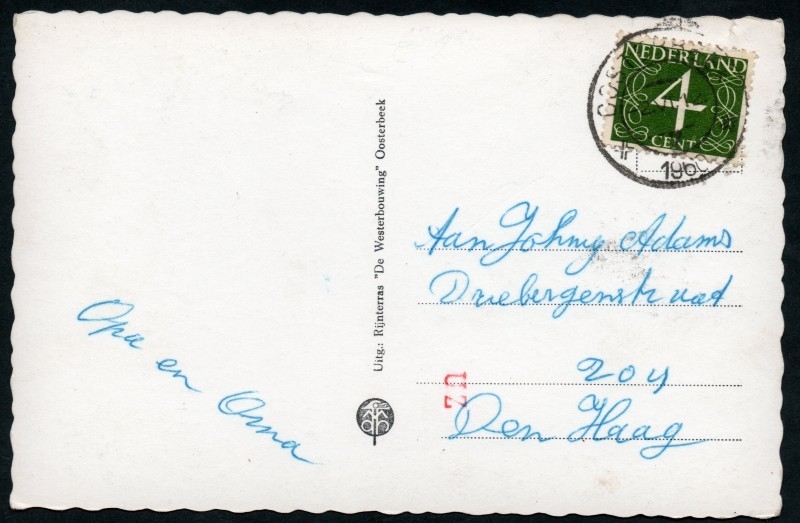 NEDERLAND
4
CENT
196
Uitg.: Rijnterras "De Westerbouwing" Oosterbeek
Opa en Oma
Aan Johny Adams
Driebergenstraat
204
Den Haag